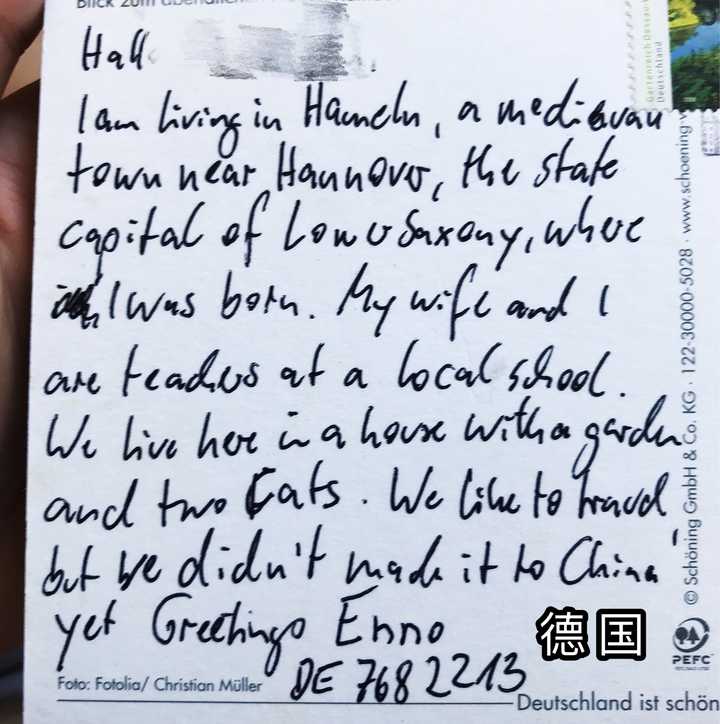 Hall
I am living in Hameln, a medievau
town near Hannover, the state
capital of Lower Saxony, where
I was born. My wife and I
are teachers at a local school.
We live here in a house with a garden
and two Cats. We like to travel
but we didn't made it to China
yet Greetings Enno
DE 7682213
德国
Foto: Fotolia/ Christian Müller
Deutschland ist schön
Gartenreich Dessau
Deutschland
© Schöning GmbH & Co. KG · 122-30000-5028 · www.schoening-v
PEFC